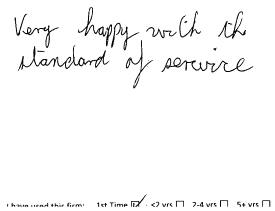 Very happy with the
standard of serwire
I have used this firm: 1st Time ☑ <2 yrs ☐ 2-4 yrs ☐ 5+ yrs ☐